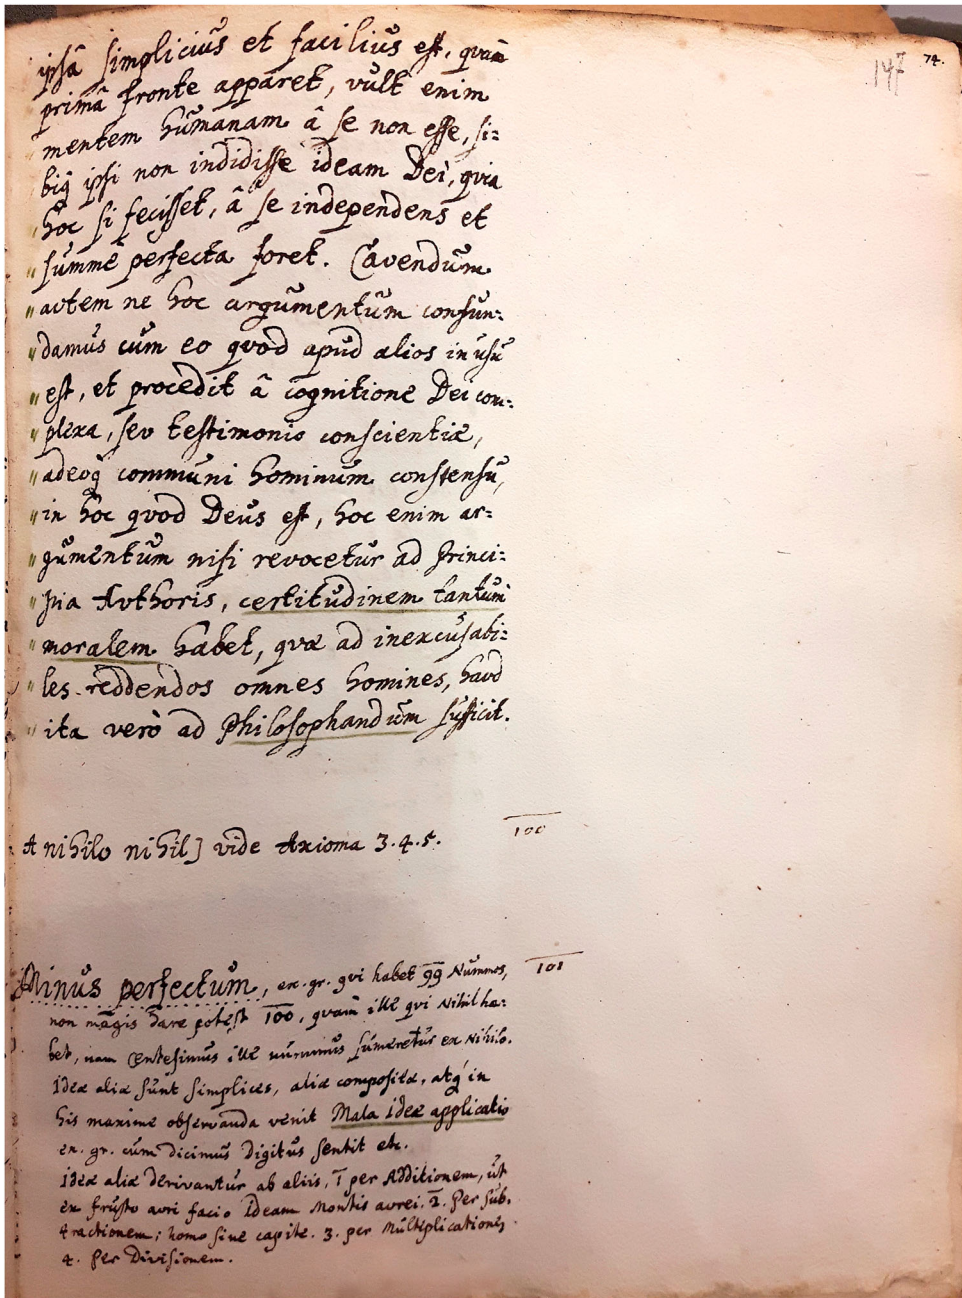 147
74.
ipsâ simplicius et facilius est, quam
primâ fronte apparet, vult enim
mentem humanam â se non esse, si=
biq ipsi non indidisse ideam Dei, qvia
hoc si fecisset, â se independens et
summè perfecta foret. Cavendum
avtem ne hoc argumentum confun=
damus cum eo qvod apud alios in usu
est, et procedit â cognitione Dei com=
plexa, sev testimonio conscientiæ,
adeoq communi hominum consensu,
in hoc qvod Deus est, hoc enim ar=
gumentum nisi revocetur ad Princi=
pia Avthoris, certitudinem tantum
moralem habet, qvæ ad inexcusabi=
les reddendos omnes homines, havd
ita verò ad Philosophandum sufficit.
A nihilo nihil] vide Axioma 3.4.5.
100
Minus perfectum, ex. gr. qvi habet 99 Nummos,
101
non magis dare potest 100, quam ille qvi Nihil ha=
bet, nam Centesimus ille nummus sumeretur ex Nihilo.
Ideæ aliæ sunt simplices, aliæ compositæ, atq in
his maxime observanda venit Mala Ideæ applicatio
ex. gr. cum dicimus Digitus sentit etc.
ideæ aliæ derivantur ab aliis, 1 per Additionem, ut
ex frusto avri facio Ideam Montis avrei. 2. Per Sub=
tractionem; homo sine capite. 3. per Multiplicationes
4. Per Divisionem.